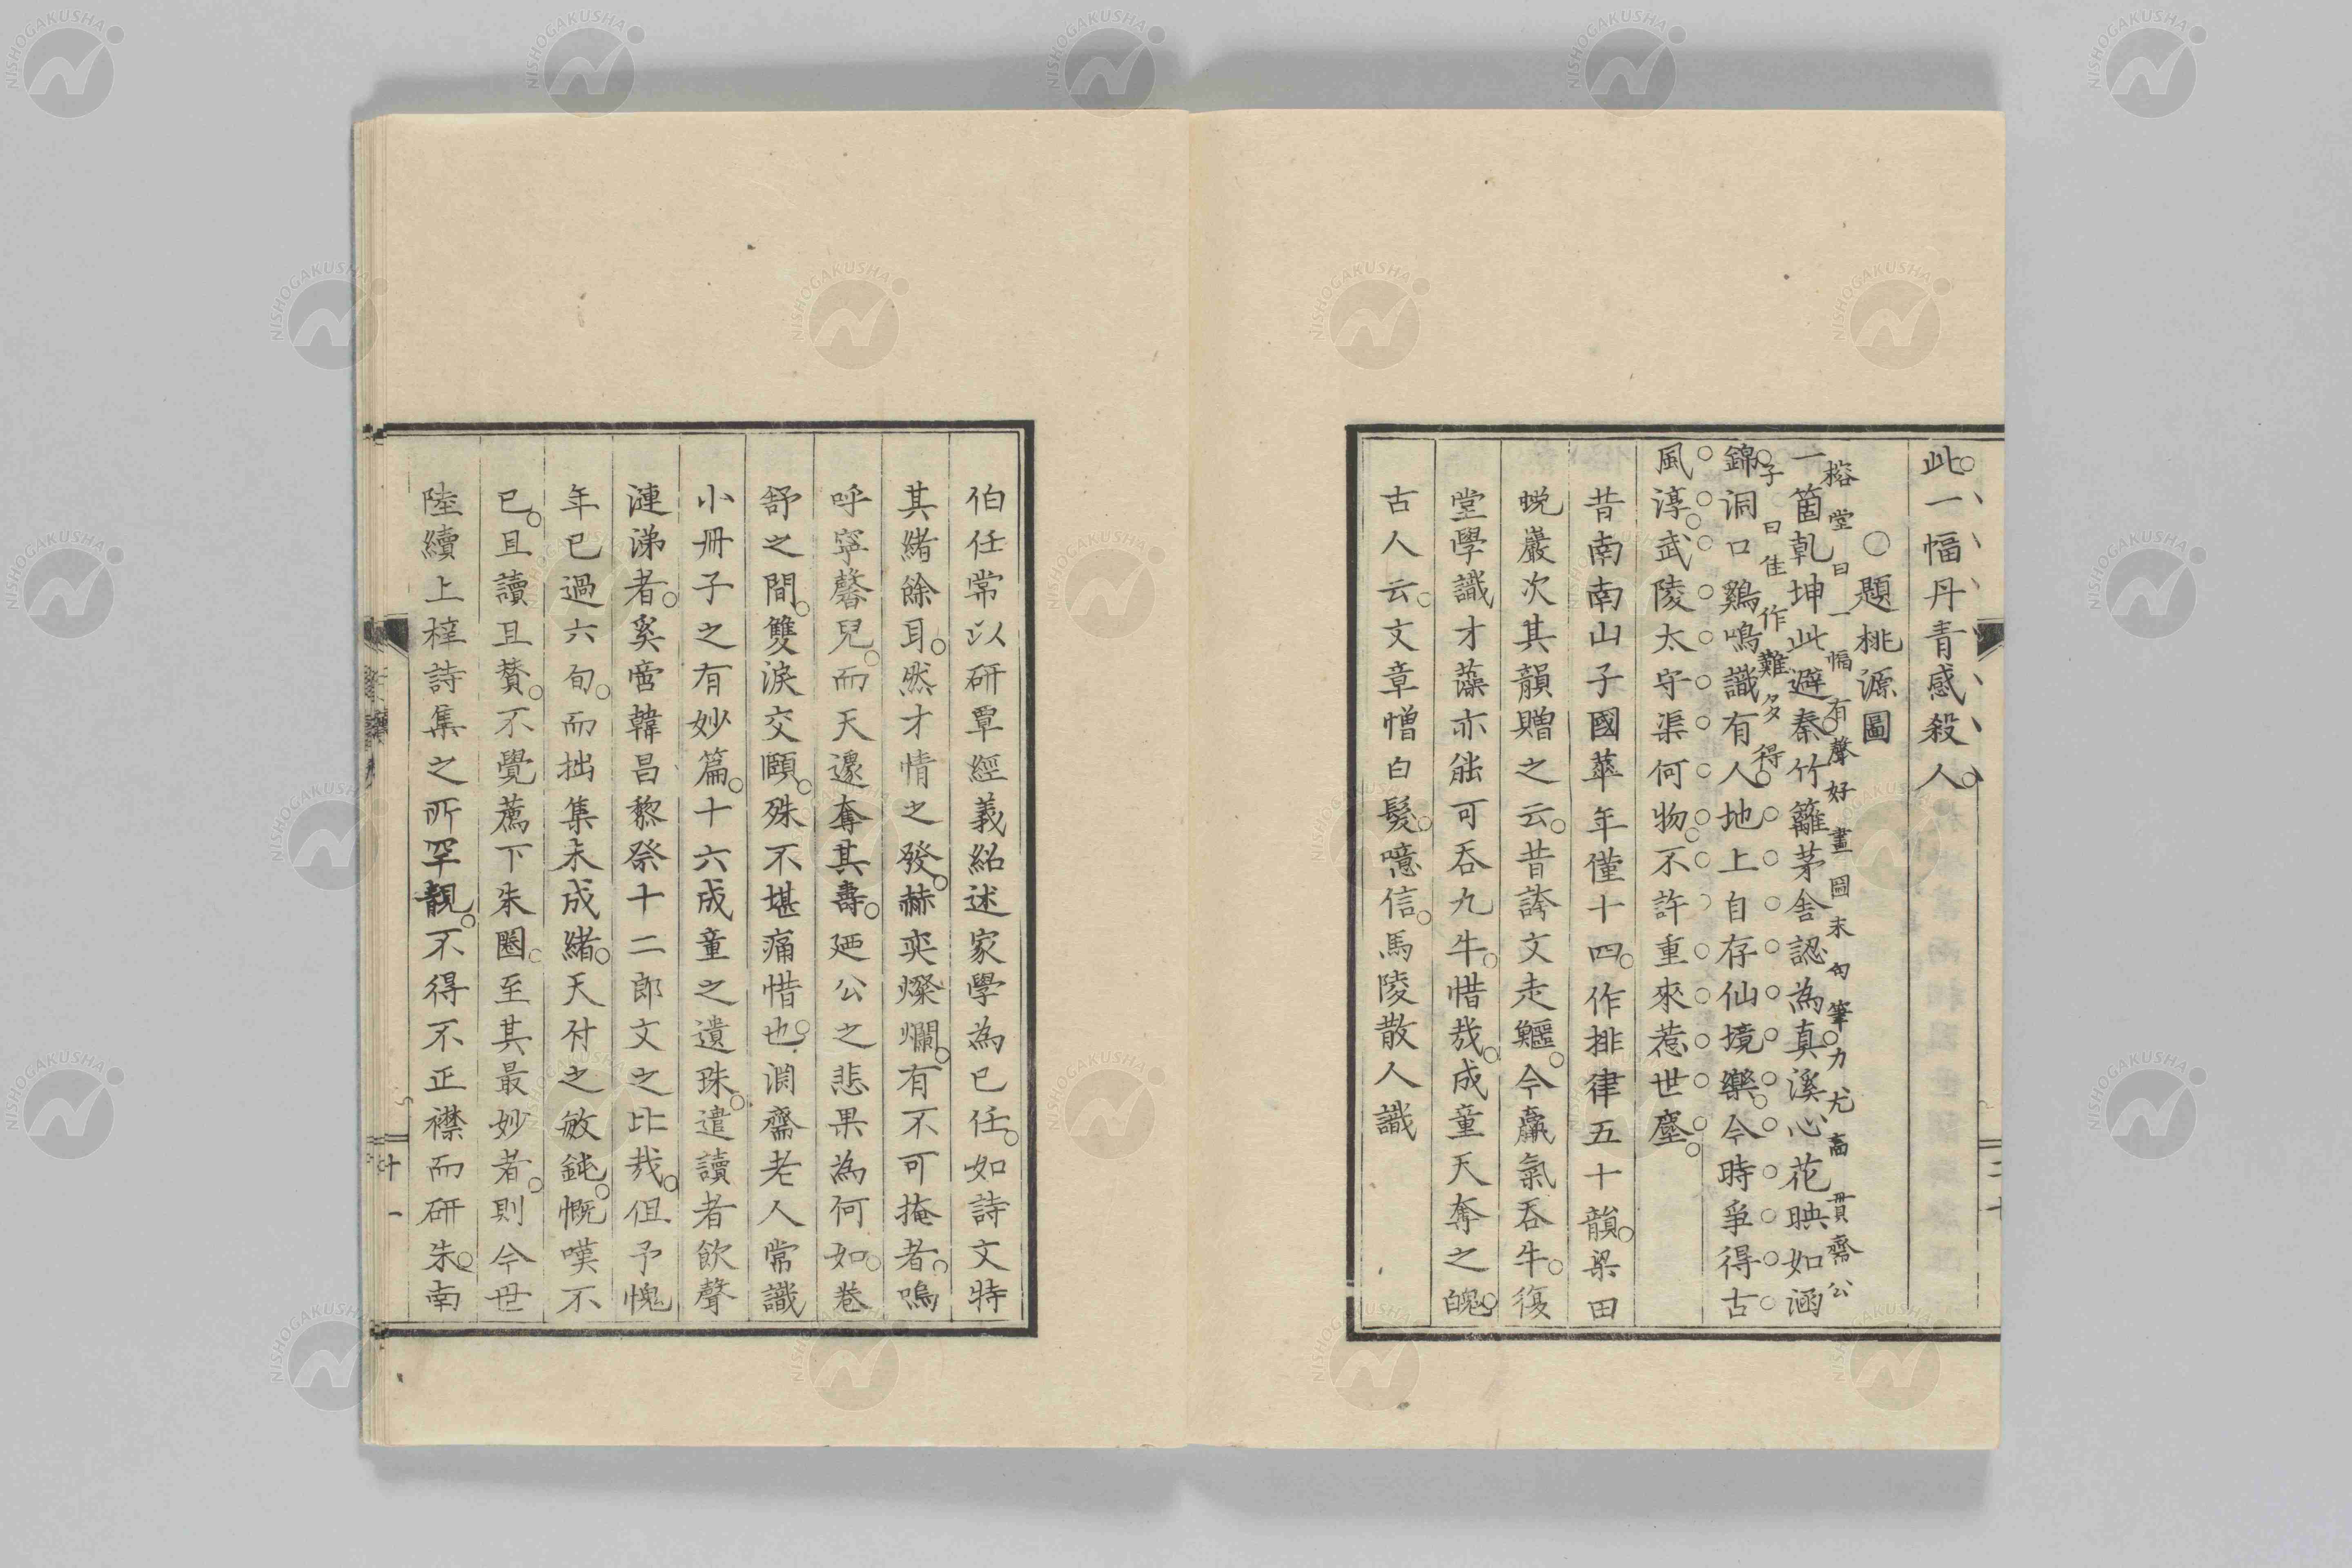 此一幅丹青感殺人
○題桃源圖
一箇乹坤此避秦竹籬茅舍認為真溪心花映如涵
榕堂曰一幅有聲好畫圖末句筆力尤高 毌貫齋公
錦洞口鷄鳴識有人地上自存仙境樂今時爭得古
子曰佳作難多得
風淳武陵太守渠何物不許重來惹世塵
昔南南山子國華年僅十四作排律五十韻梁田
蛻巖次其韻贈之云昔誇文走鱷今驫氣吞牛復
堂學識才藻亦能可吞九牛惜哉成童天奪之魄
古人云文章憎白髮噫信馬陵散人識
伯任常以研覃經義紹述家學為己任如詩文特
其緒餘耳然才情之發赫奕燦爛有不可掩者嗚
呼寧馨兒而天遽奪其壽廼公之悲果為何如卷
舒之間雙淚交頤殊不堪痛惜也淵齋老人常識
小冊子之有妙篇十六成童之遺珠遣讀者飲聲
漣涕者奚啻韓昌黎祭十二郎文之比哉但予愧
年已過六旬而拙集未成緒天付之敏鈍慨嘆不
已且讀且贊不覺薦下朱圈至其最妙者則今世
陸續上梓詩集之所罕覯不得不正襟而研朱南
十一
NISHOGAKUSHA